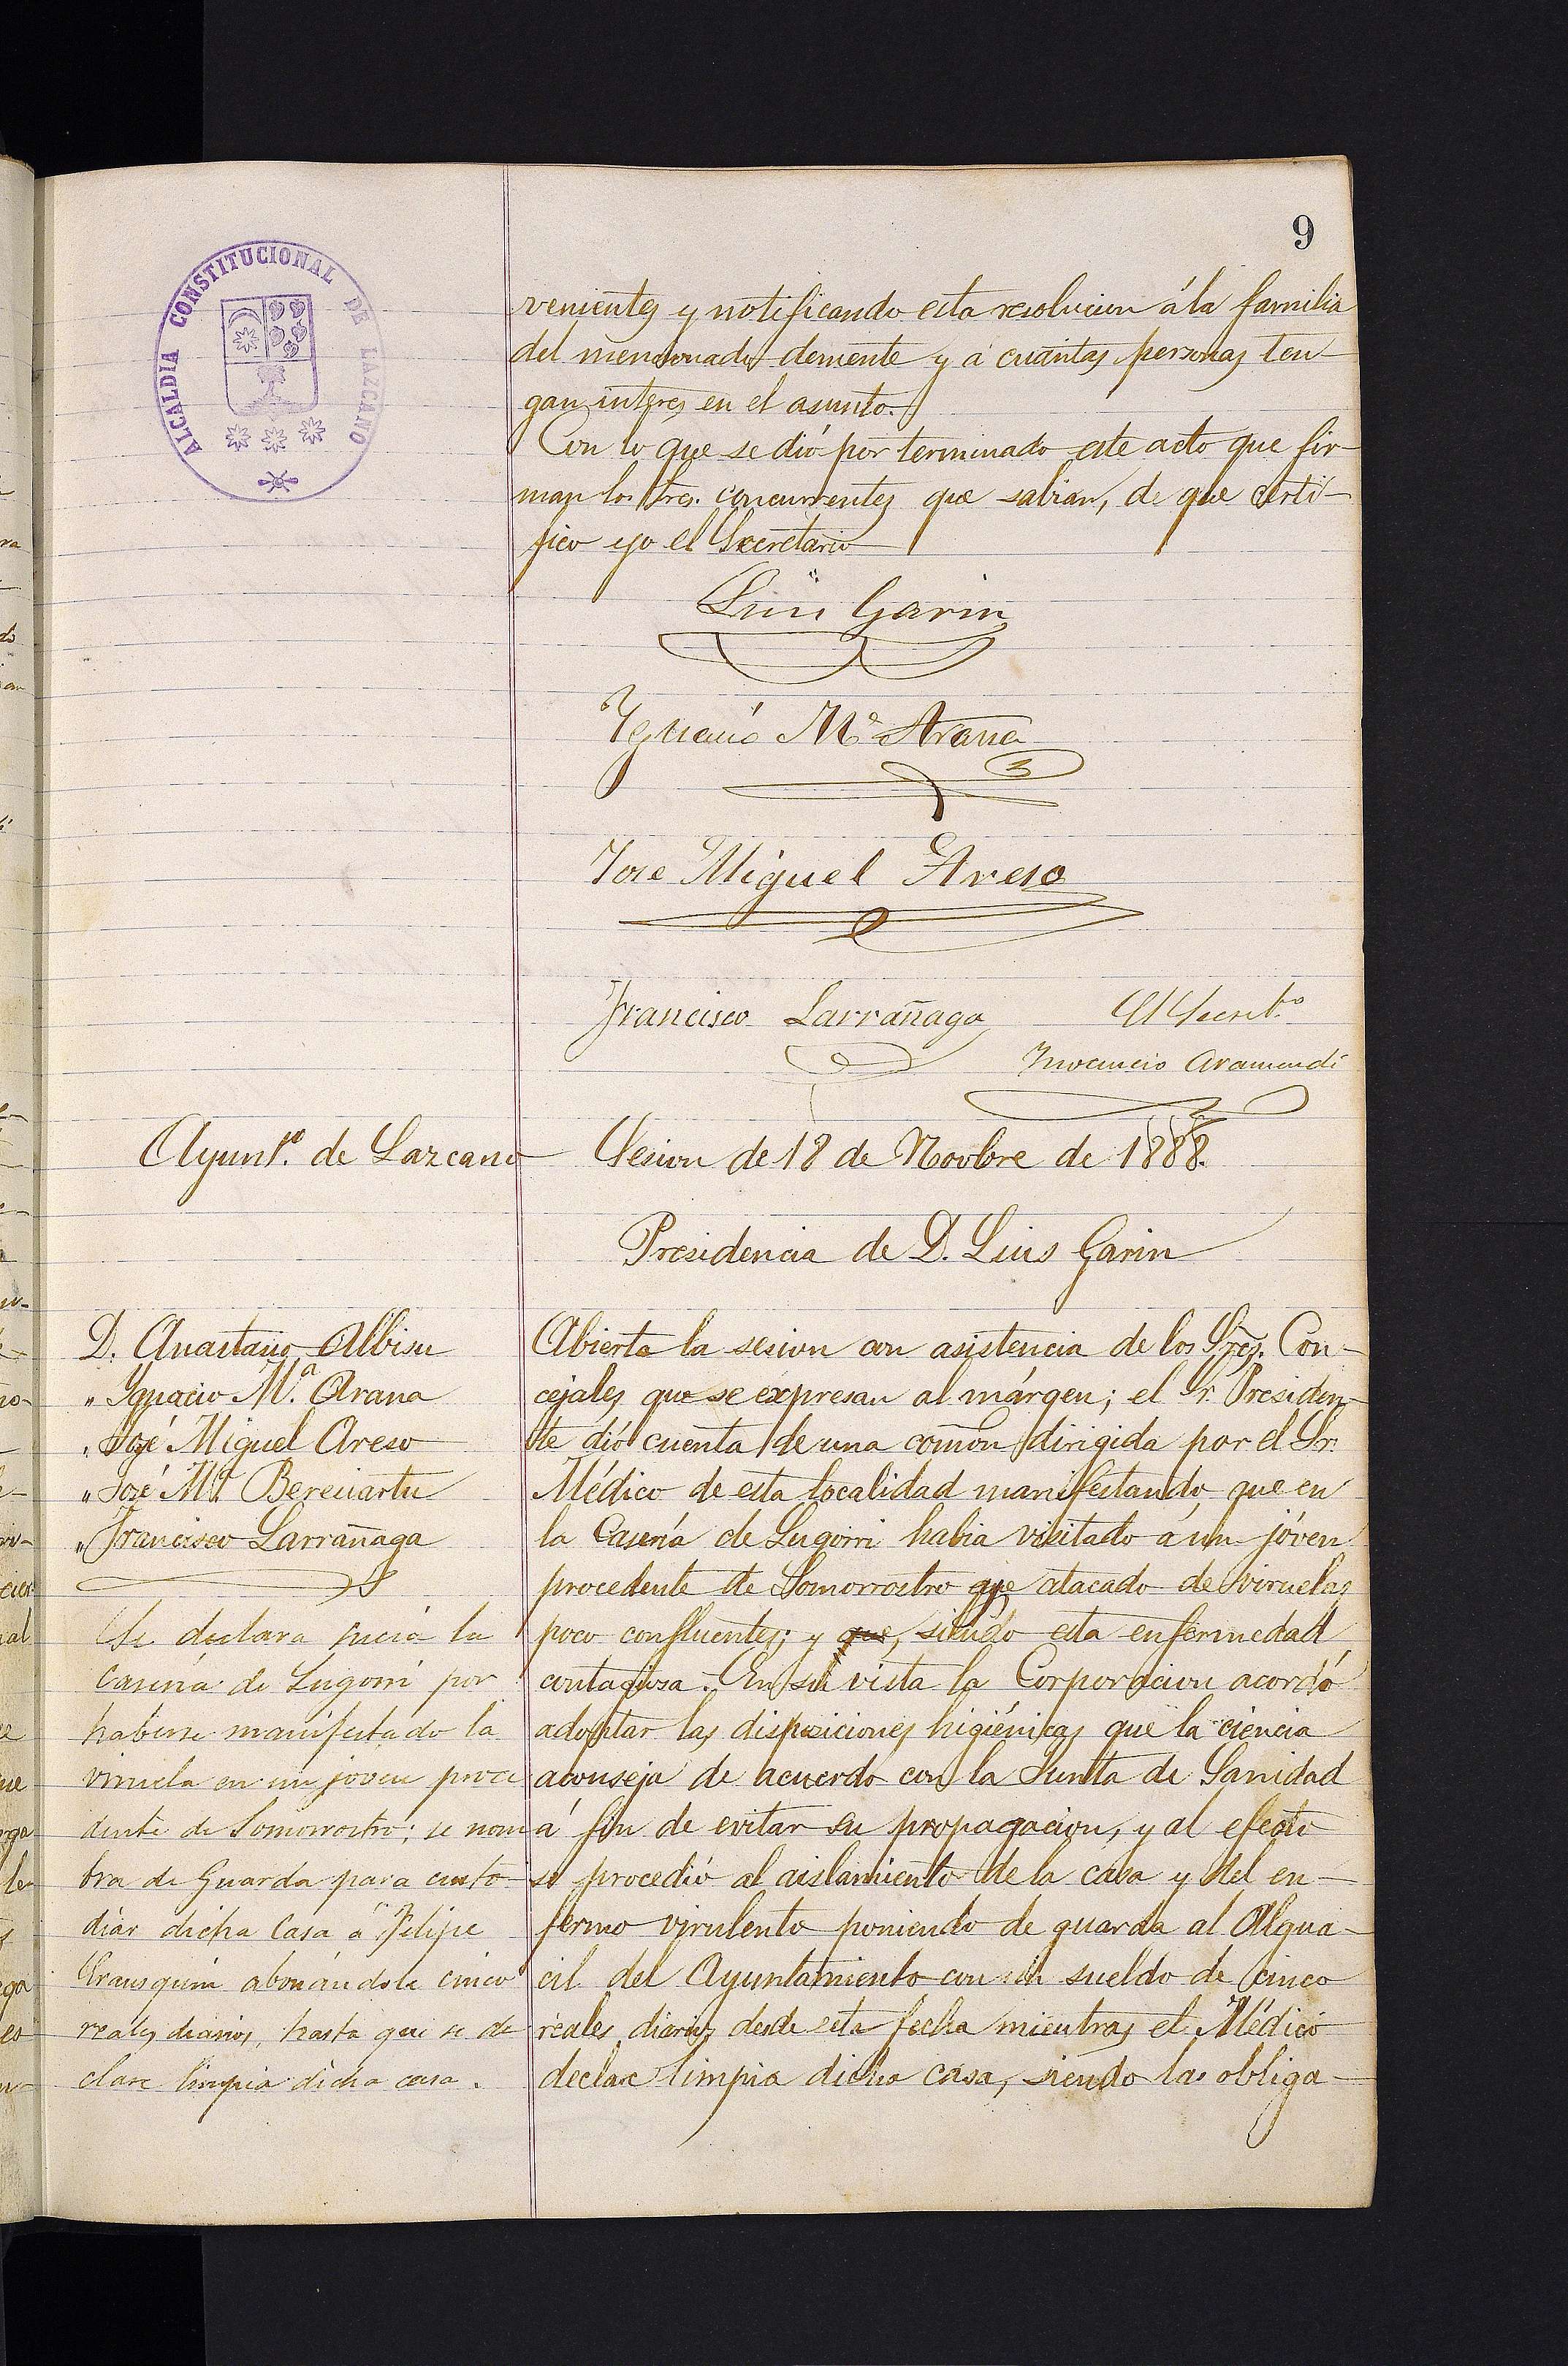 9
ALCALDIA CONSTITUCIONAL DE LAZCANO
venientes y notificando esta resolucion á la familia
del mencionado demente y á cuantas personas ten-
gan interes en el asunto.
Con lo que se dió por terminado este acto que fir-
man los Sres. concurrentes que sabian, de que certi-
fico yo el Secretario
Luis Garin
Ygnacio Mª Arana
Jose Miguel Areso
Francisco Larrañaga
El Secret.º
Inocencio Aramendi
Ayunt.º de Lazcano
Sesion de 18 de Novbre de 1888.
Presidencia de D. Luis Garin
D. Anastasio Albisu
" Ygnacio M.ª Arana
" José Miguel Areso
" José Mª Bereciartu
" Francisco Larrañaga
Se declara sucia la
caseria de Lugorri por
haberse manifestado la
viruela en un joven proce
dente de Somorrostro; se nom
bra de Guarda para custo
diar dicha Casa á Felipe
Uransquin abonándole cinco
reales diarios, hasta que se de
clare limpia dicha casa.
Abierta la sesion con asistencia de los Sres. Con-
cejales que se expresan al márgen; el Sr. Presiden-
te dió cuenta de una comon dirigida por el Sr.
Médico de esta localidad manifestando, que en
la Caseria de Lugorri habia visitado á un jóven
procedente de Somorrostro que atacado de viruelas
poco confluentes; y que, siendo esta enfermedad
contagiosa. En su vista la Corporacion acordó
adoptar las disposiciones higiénicas que la ciencia
aconseja de acuerdo con la Junta de Sanidad
á fin de evitar su propagacion, y al efecto
se procedió al aislamiento de la casa y del en-
fermo virulento poniendo de guarda al Algua-
cil del Ayuntamiento con un sueldo de cinco
reales diarios desde esta fecha mientras el Médico
declare limpia dicha casa, siendo las obliga-